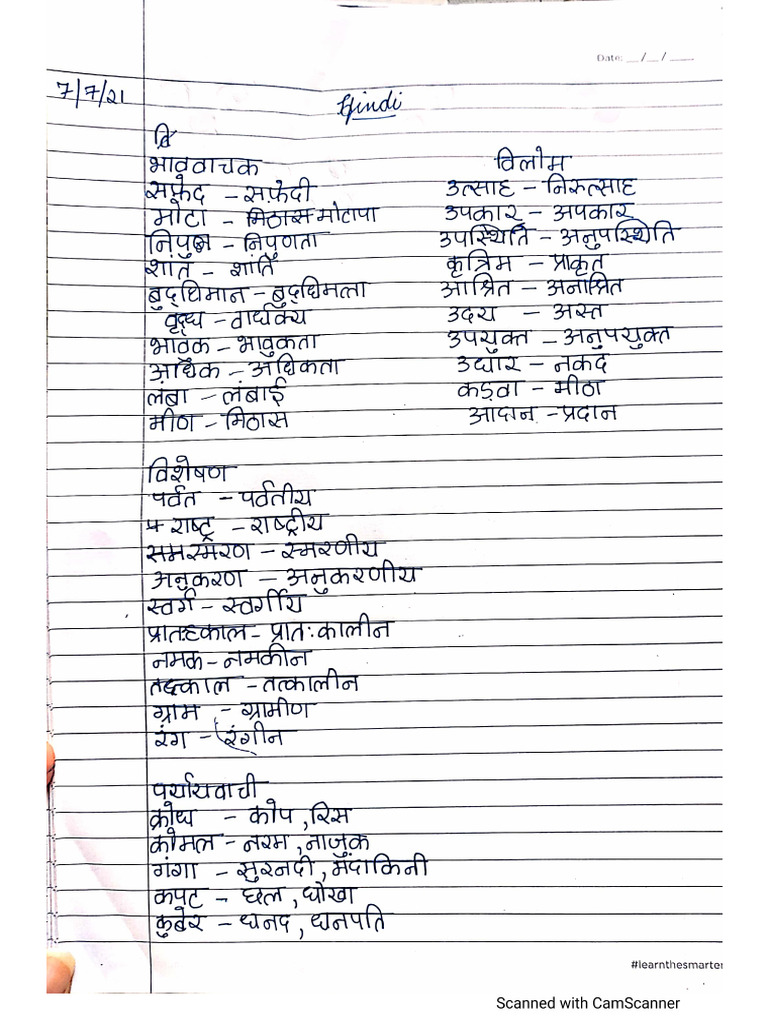 Date: __/__/____
7/7/21
Hindi
वि
भाववाचक
सफ़ेद - सफ़ेदी
मोटा - मिठास मोटापा
निपुण - निपुणता
शांत - शांति
बुद्धिमान - बुद्धिमत्ता
वृद्ध - वार्धक्य
भावुक - भावुकता
अधिक - अधिकता
लंबा - लंबाई
मीठा - मिठास
विलोम
उत्साह - निरुत्साह
उपकार - अपकार
उपस्थिति - अनुपस्थिति
कृत्रिम - प्राकृत
आश्रित - अनाश्रित
उदय - अस्त
उपयुक्त - अनुपयुक्त
उधार - नकद
कड़वा - मीठा
आदान - प्रदान
विशेषण
पर्वत - पर्वतीय
राष्ट्र - राष्ट्रीय
स्मरण - स्मरणीय
अनुकरण - अनुकरणीय
स्वर्ग - स्वर्गीय
प्रातःकाल - प्रातःकालीन
नमक - नमकीन
तत्काल - तत्कालीन
ग्राम - ग्रामीण
रंग - रंगीन
पर्यायवाची
क्रोध - कोप, रिस
कोमल - नरम, नाजुक
गंगा - सुरनदी, मंदाकिनी
कपट - छल, धोखा
कुबेर - धनद, धनपति
#learnthesmarter
Scanned with CamScanner